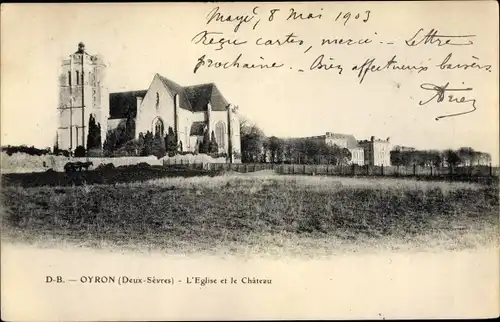 Mayé 8 Mai 1903
Reçu cartes, merci. — Lettre
prochaine. — Bien affectueux baisers
D-B. — OYRON (Deux-Sèvres) - L'Eglise et le Château